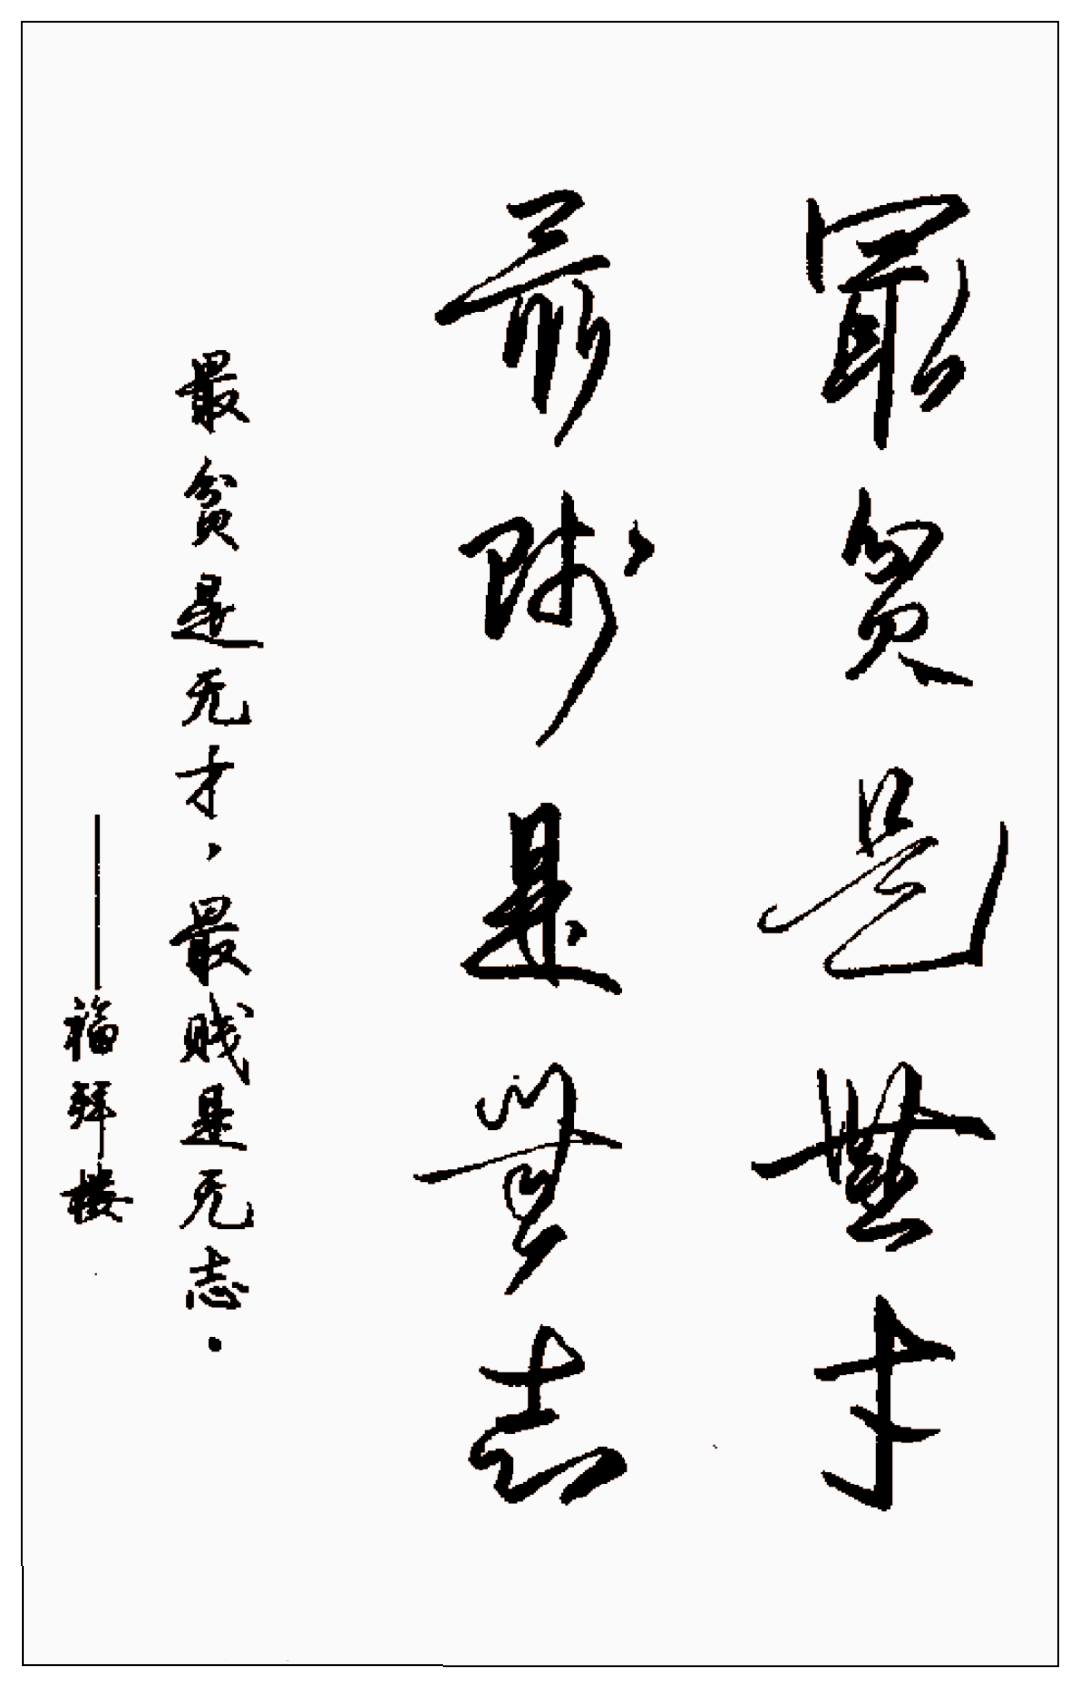 最貧是無才
最賤是無志
最贫是无才，最贱是无志。
——福拜楼